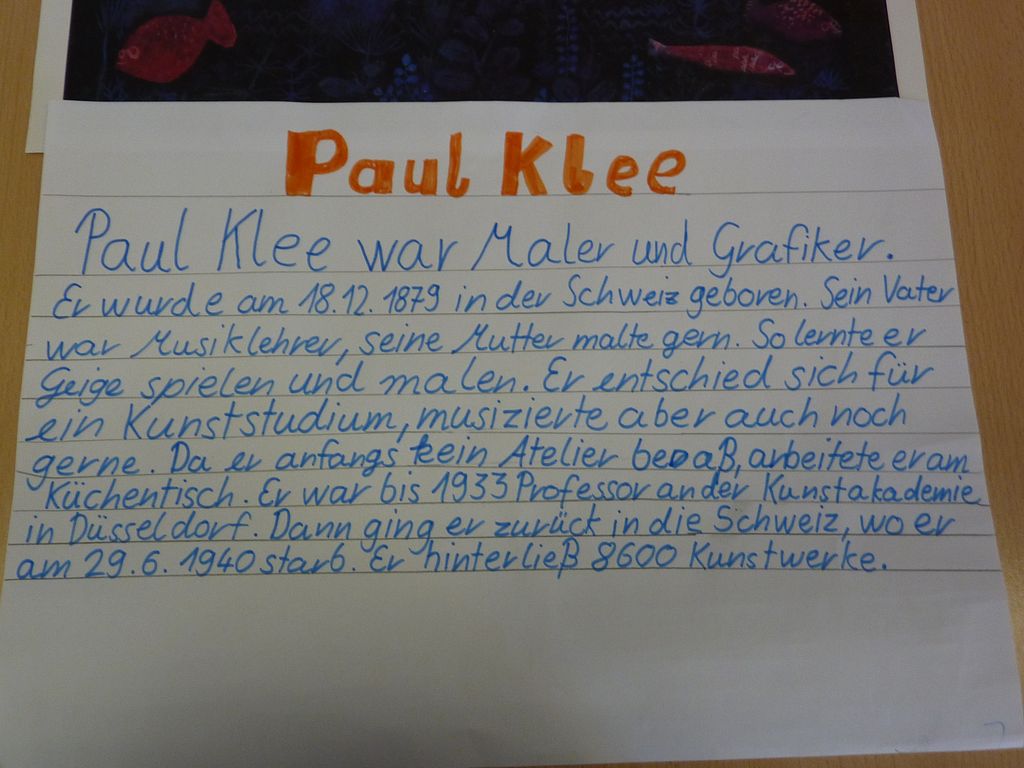 Paul Klee
Paul Klee war Maler und Grafiker.
Er wurde am 18.12.1879 in der Schweiz geboren. Sein Vater
war Musiklehrer, seine Mutter malte gern. So lernte er
Geige spielen und malen. Er entschied sich für
ein Kunststudium, musizierte aber auch noch
gerne. Da er anfangs kein Atelier besaß, arbeitete er am
Küchentisch. Er war bis 1933 Professor an der Kunstakademie
in Düsseldorf. Dann ging er zurück in die Schweiz, wo er
am 29.6.1940 starb. Er hinterließ 8600 Kunstwerke.